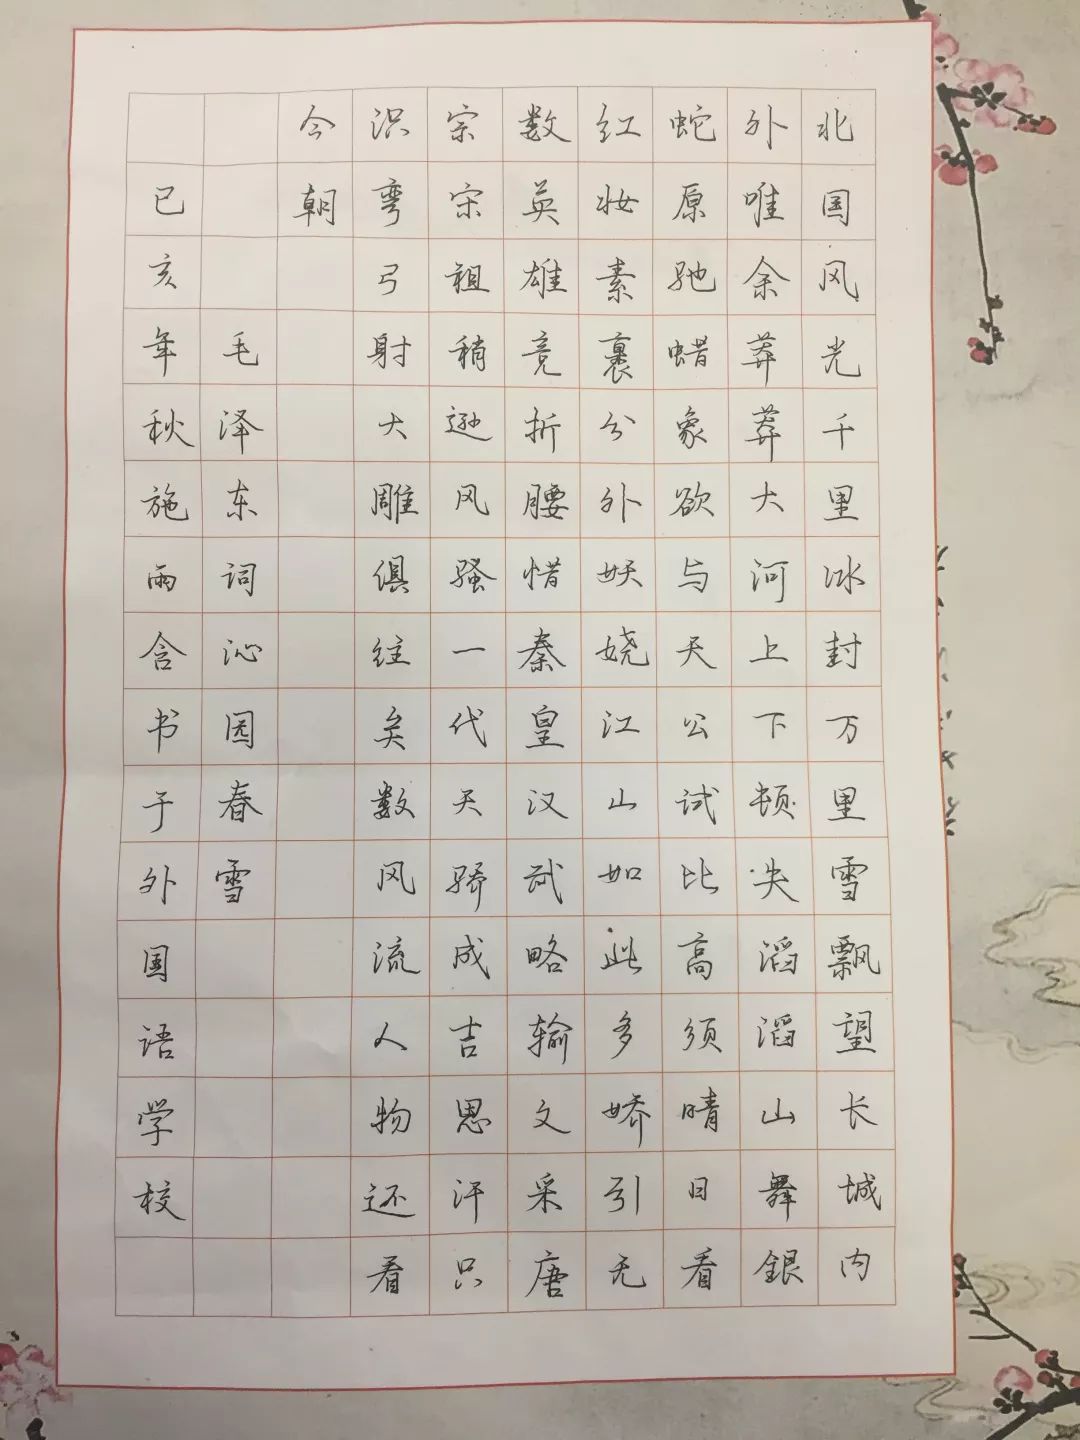 北国风光千里冰封万里雪飘望长城内
外唯余莽莽大河上下顿失滔滔山舞銀
蛇原驰蜡象欲与天公试比高须晴日看
红妆素裹分外妖娆江山如此多娇引无
数英雄竞折腰惜秦皇汉武略输文采唐
宗宋祖稍逊风骚一代天骄成吉思汗只
识弯弓射大雕俱往矣数风流人物还看
今朝
毛泽东词沁园春雪
已亥年秋施雨含书于外国语学校